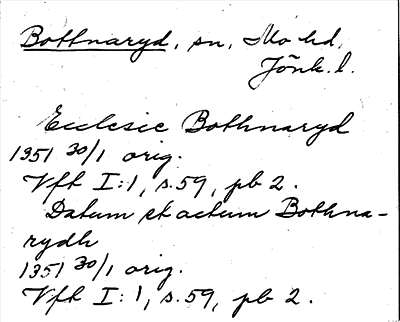 Bottnaryd, sn, Mo hd,
Jönk. l.
Ecclesie Bothnaryd
1351 30/1 orig.
Vfk I:1, s. 59, pb 2.
Datum et actum Bothna-
rydh
1351 30/1 orig.
Vfk I:1, s. 59, pb 2.